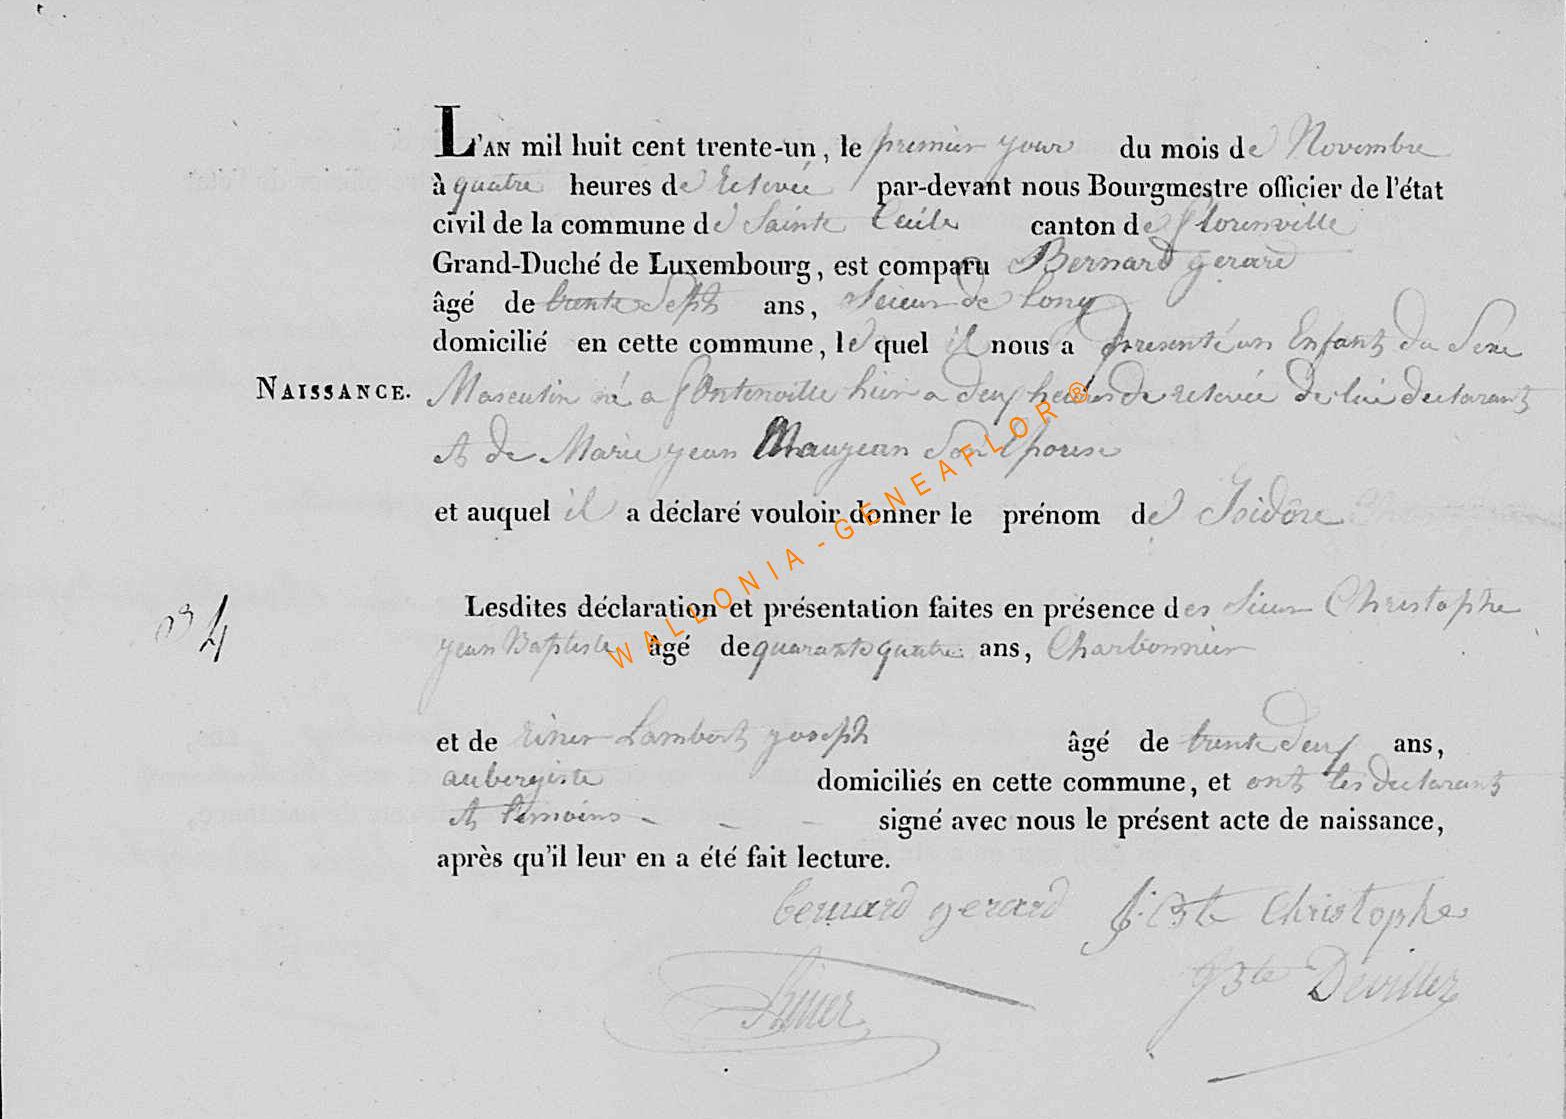 L'AN mil huit cent trente-un, le premier jour du mois de Novembre
à quatre heures de relevée par-devant nous Bourgmestre officier de l'état
civil de la commune de Sainte Cecile canton de florenville
Grand-Duché de Luxembourg, est comparu Bernard gerard
âgé de trente Sept ans, Sieur de Long
domicilié en cette commune, lequel il nous a presenté un Enfant du Sexe
NAISSANCE. Masculin né a fontenoille hier a deux heures de relevée de lui declarant
et de Marie jean Maujean Son Epouse
et auquel il a déclaré vouloir donner le prénom de Isidore
Lesdites déclaration et présentation faites en présence des Sieur Christophe
34 jean Baptiste âgé de quarante quatre ans, Charbonnier
et de riner Lambert joseph âgé de trente deux ans,
aubergiste domiciliés en cette commune, et ont les declarant
et temoins - - - signé avec nous le présent acte de naissance,
après qu'il leur en a été fait lecture.
bernard gerard J. Bte Christophe
Riner J Bte Deviller
WALLONIA - GENEAFLOR ®